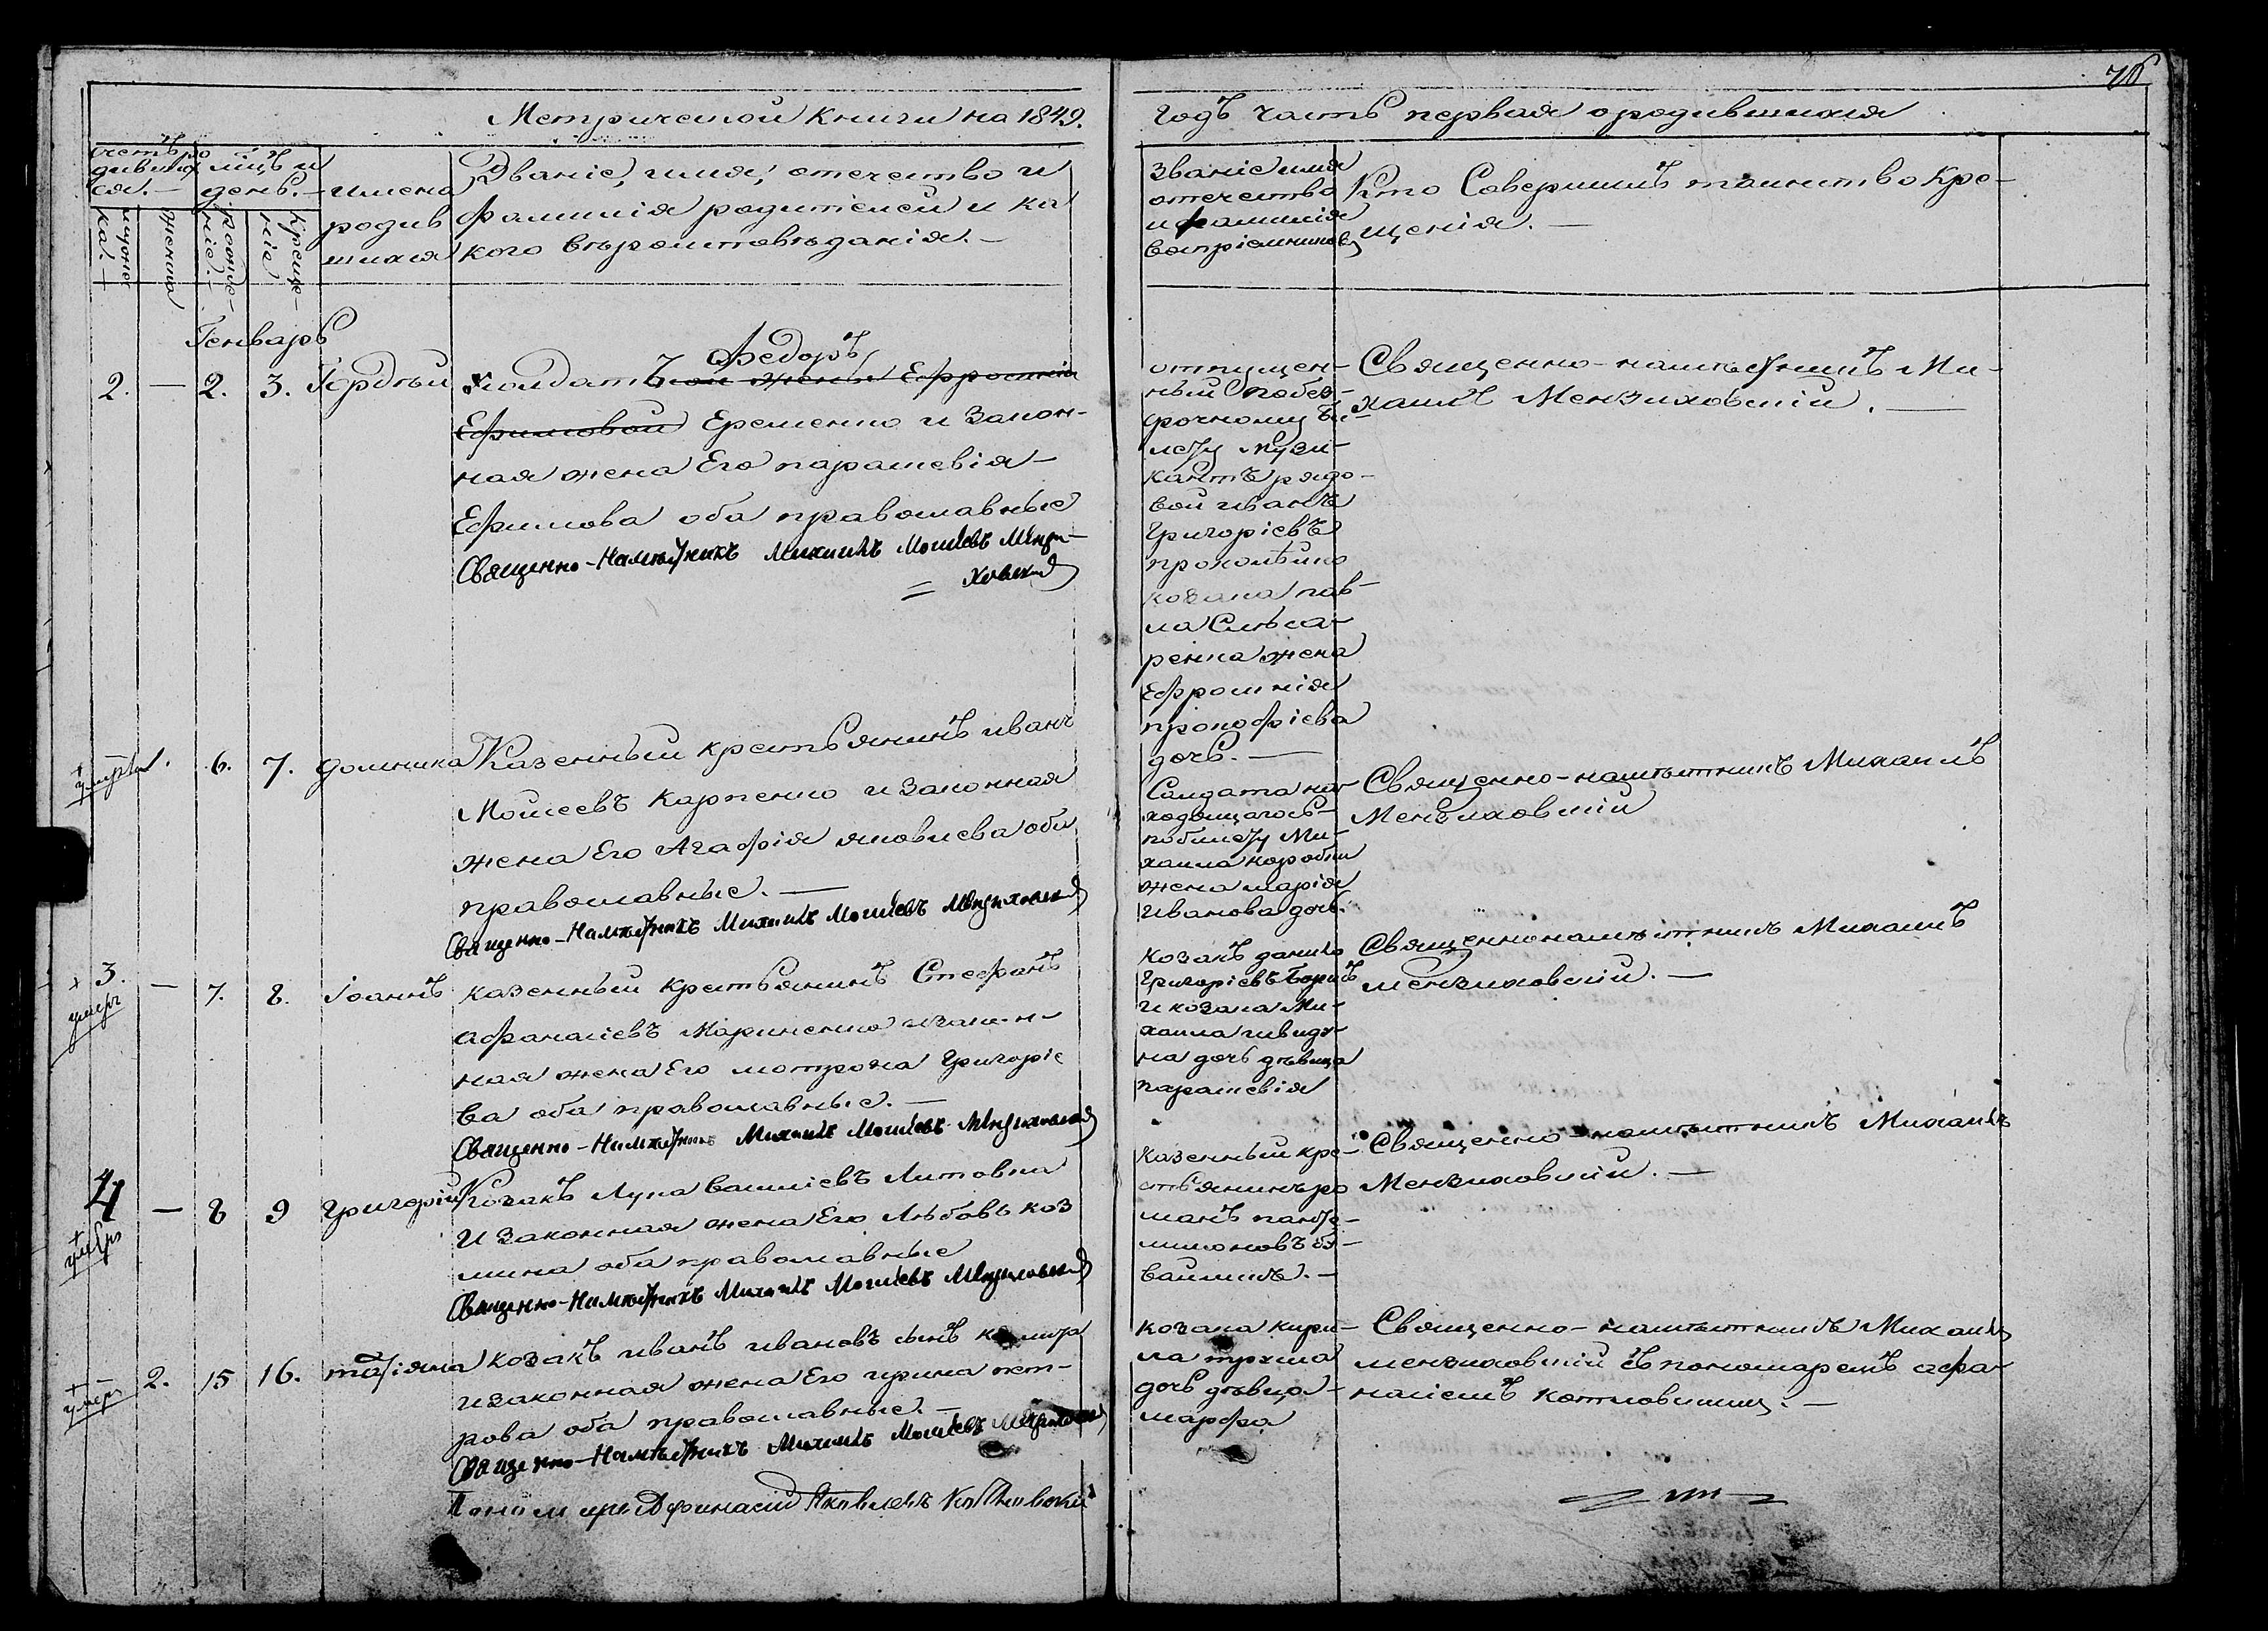 76
Метрической Книги на 1849.
годъ часть первая о родившихся
счетъ ро
дивших
ся. —
мѣсяцъ и
день. —
мужеск
ка. —
женска
рожде-
ніе. —
Креще-
ніе
имена
родив
шихся
Званіе, имя, отечество и
фамилія родителей и ка
кого вѣроисповѣданія. —
Званіе имя
отечество
и фамилія
воспріемниковъ
Кто Совершилъ таинство Кре-
щенія. —
Генварь
2. — 2. 3. Гордѣй
Федоръ
Солдатъ ской жены Ефросиніи
Ефимовой Еременко и закон-
ная жена Его параскевія
Ефимова оба православные
Священно-Намѣстникъ Михаилъ Моисеевъ Мензи-
ховскій
отпущен-
ный по без-
срочному би-
лету музы-
кантъ рядо-
вой иванъ
Григоріевъ
прокопѣнко
козака пав-
ла Слѣса-
ренка жена
Ефросинія
прокофіева
дочь. —
Священно-намѣстникъ Ми-
хаилъ Мензиховскій. —
умерла 1. 6. 7. домника
Казенный крестьянинъ иванъ
Моисеевъ Карпенко и законная
жена Его Агафія яковлева оба
православные. —
Священно-Намѣстникъ Михаилъ Моисеевъ Мензиховскій
Солдата на-
ходящагось
по билету Ми-
хаила коробки
жена марія
Иванова дочь.
Священно-намѣстникъ Михаилъ
Мензиховскій
3. умеръ — 7. 8. Іоаннъ
казенный крестьянинъ Стефанъ
афанасіевъ Мариненко и закон-
ная жена Его мотрона Григоріе
ва оба православные. —
Священно-Намѣстникъ Михаилъ Моисеевъ Мензиховскій
козакъ данило
Григоріевъ
и козака Ми-
хаила
на дочь дѣвица
параскевія
Священнонамѣстникъ Михаилъ
мензиховскій. —
4 умеръ — 8 9 Григорій
Козакъ Лука василіевъ Литовка
И законная жена Его Любовь коз
мина оба православные
Священно-Намѣстникъ Михаилъ Моисеевъ Мензиховскій
казенный кре-
стьянинъ ро
манъ панте-
лимоновъ
Священно-намѣстникъ Михаилъ
Мензиховскій. —
умер. 2. 15 16. татіяна
козакъ иванъ ивановъ сынъ
и законная жена Его ирина пет-
рова оба православные. —
Священно-Намѣстникъ Михаилъ Моисеевъ Мензиховскій
Пономарь Афанасій Яковлевъ Котляовскій
козака кири-
ла
дочь дѣвица
марфа
Священно-намѣстникъ Михаилъ
мензиховскій съ пономаремъ афа-
насіемъ котловскимъ. —